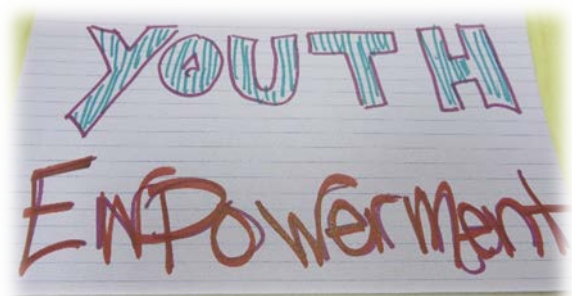 YOUTH
EmPowerment